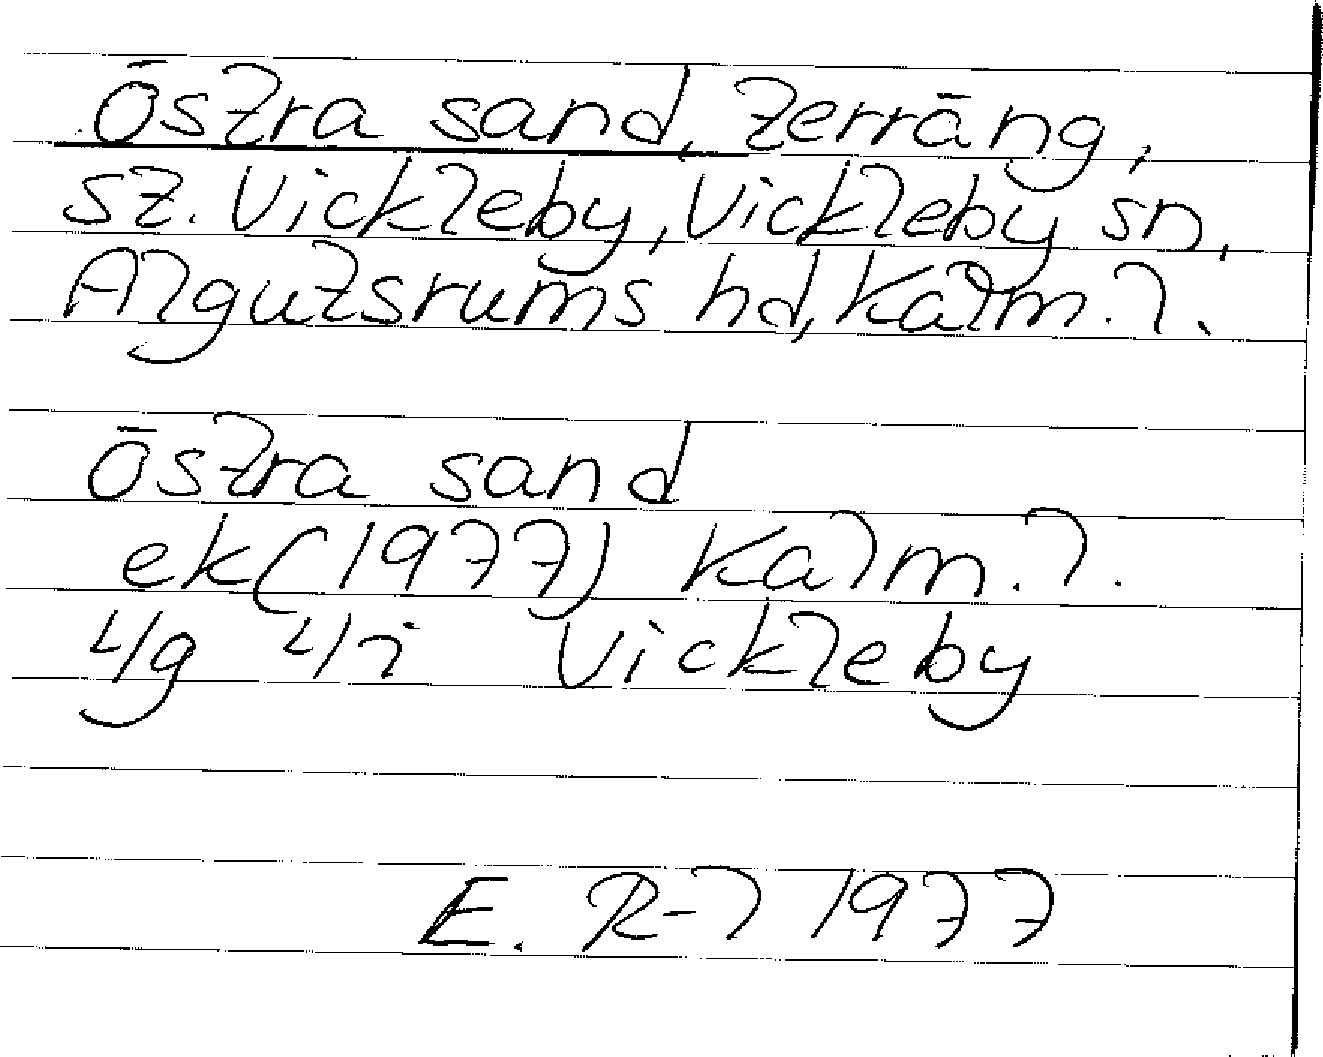 Östra sand, terräng,
st. Vickleby, Vickleby sn,
Algutsrums hd, Kalm. l.
Östra sand
ek (1977) Kalm. l.
4/g 4/i Vickleby
E. R-l 1977